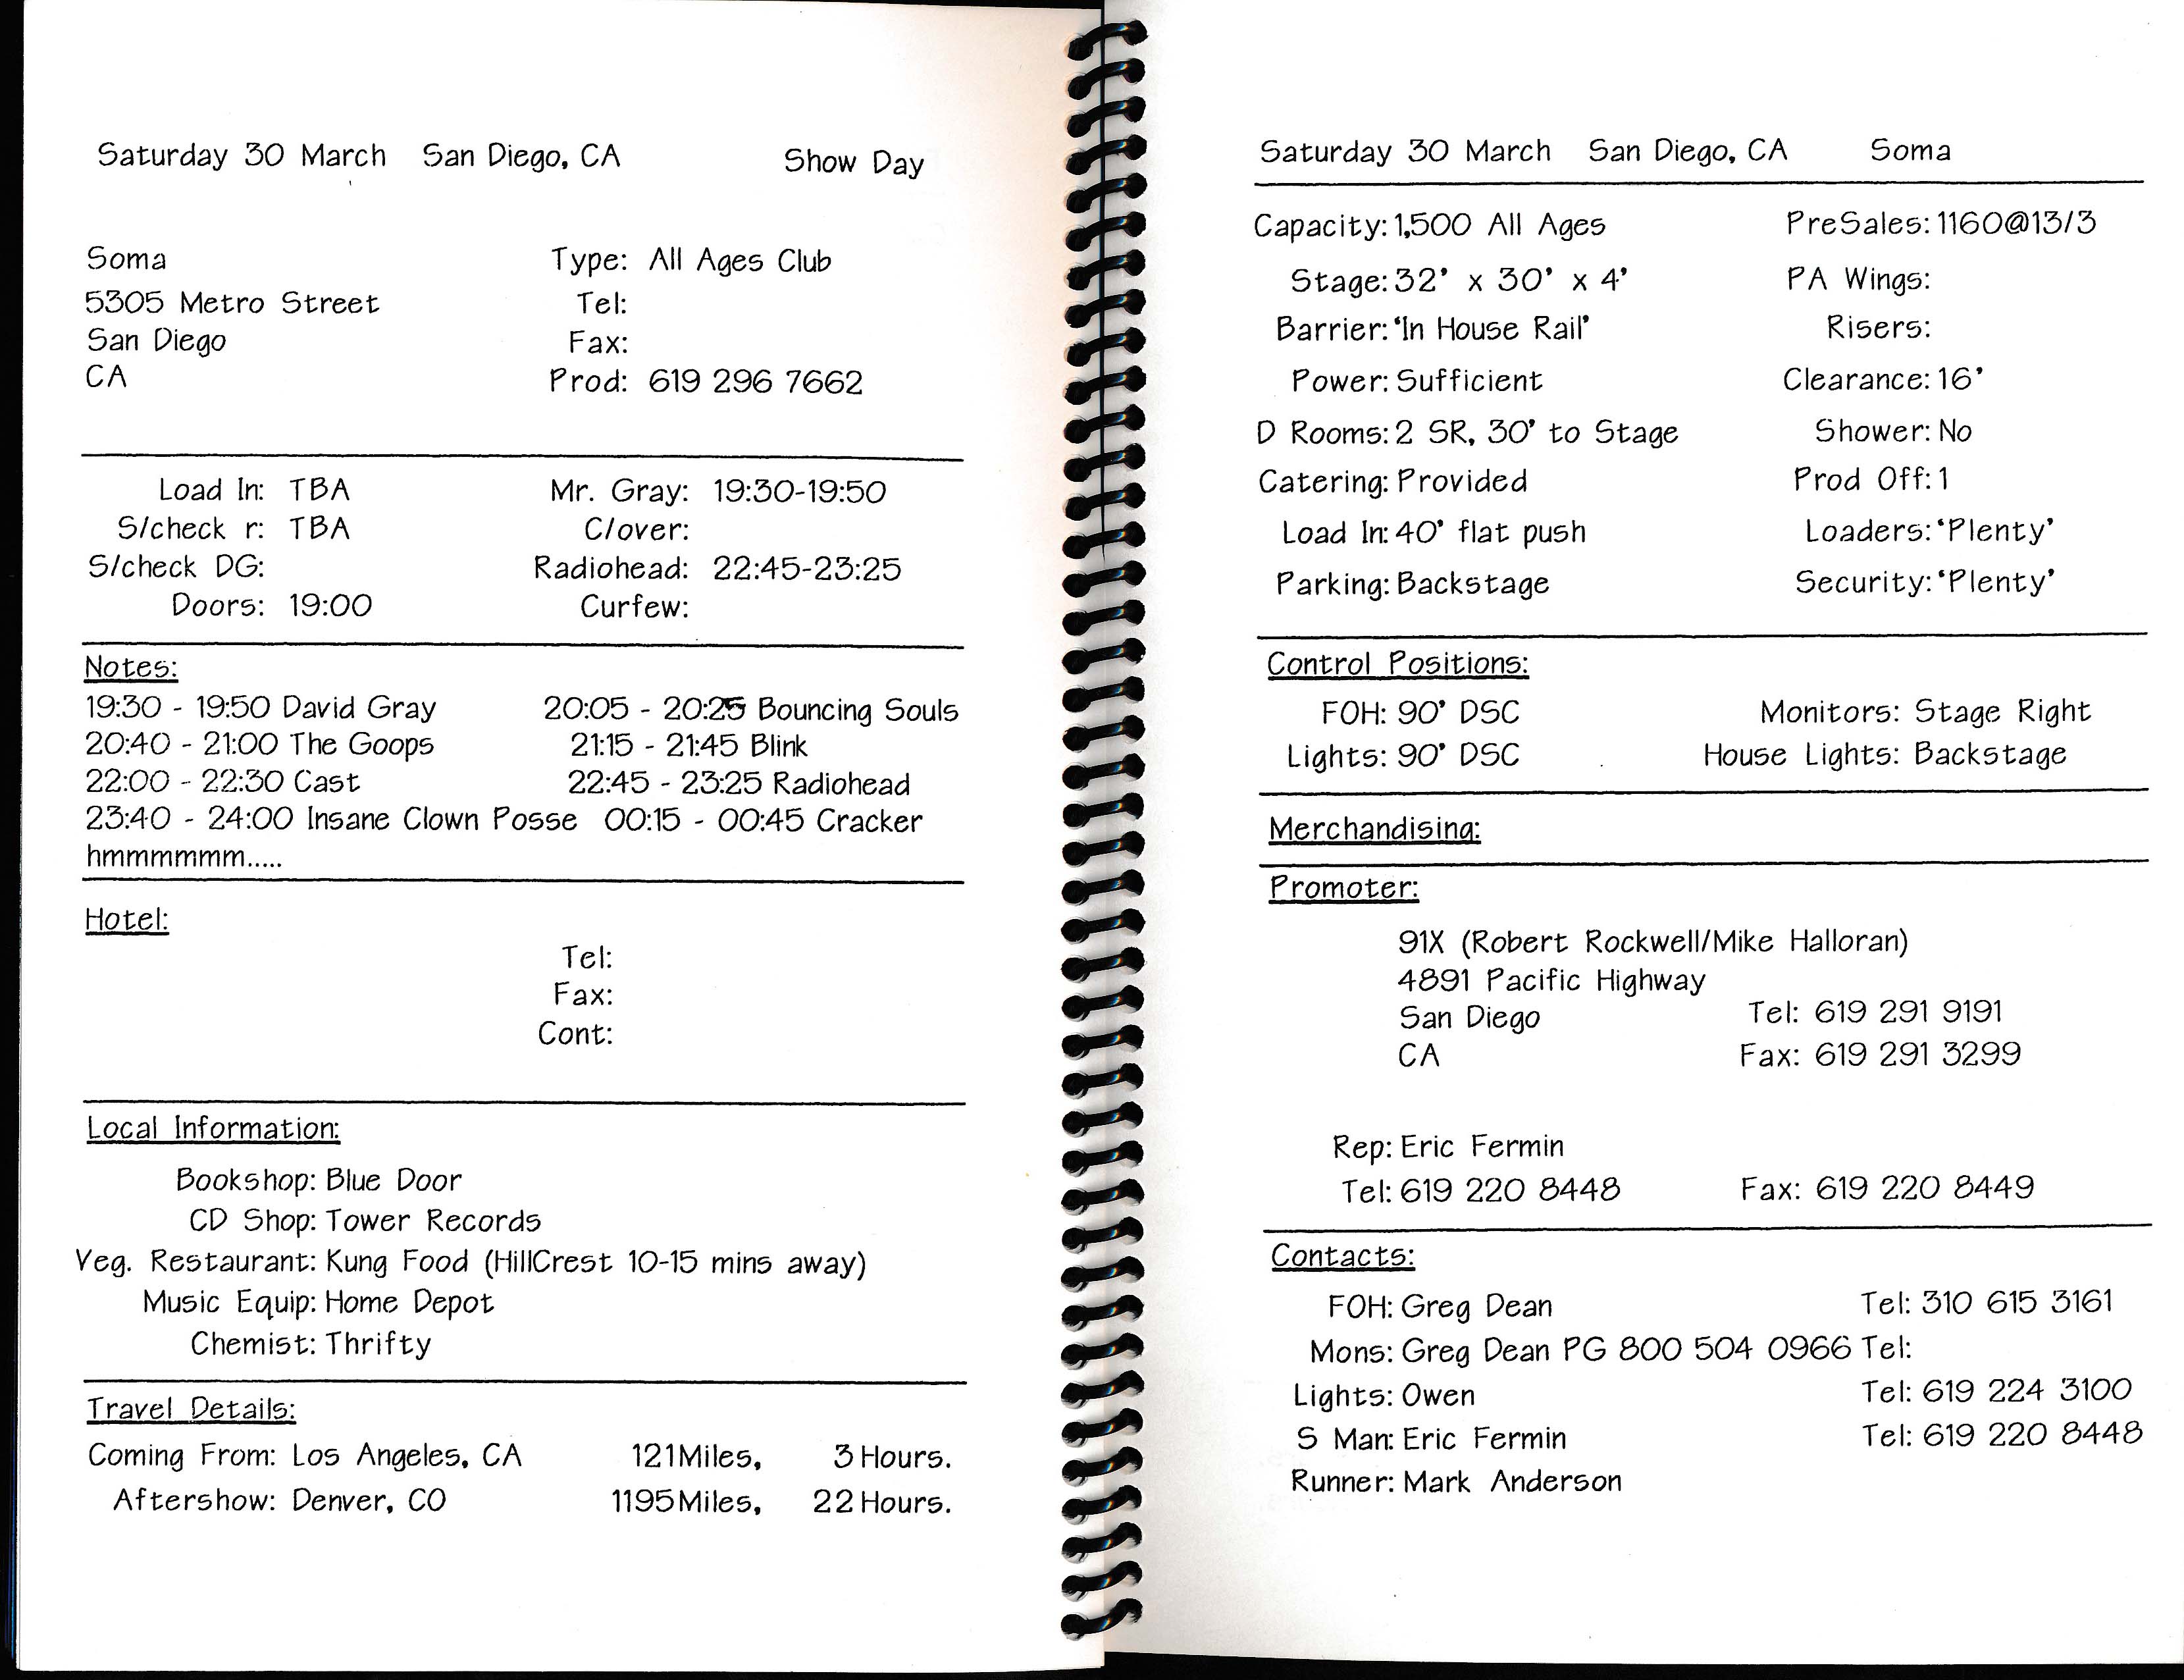 Saturday 30 March San Diego, CA Show Day
Soma Type: All Ages Club
5305 Metro Street Tel:
San Diego Fax:
CA Prod: 619 296 7662
Load In: TBA Mr. Gray: 19:30-19:50
S/check r: TBA C/over:
S/check DG: Radiohead: 22:45-23:25
Doors: 19:00 Curfew:
Notes:
19:30 - 19:50 David Gray 20:05 - 20:25 Bouncing Souls
20:40 - 21:00 The Goops 21:15 - 21:45 Blink
22:00 - 22:30 Cast 22:45 - 23:25 Radiohead
23:40 - 24:00 Insane Clown Posse 00:15 - 00:45 Cracker
hmmmmmm.....
Hotel:
Tel:
Fax:
Cont:
Local Information:
Bookshop: Blue Door
CD Shop: Tower Records
Veg. Restaurant: Kung Food (HillCrest 10-15 mins away)
Music Equip: Home Depot
Chemist: Thrifty
Travel Details:
Coming From: Los Angeles, CA 121 Miles, 3 Hours.
Aftershow: Denver, CO 1195 Miles, 22 Hours.
Saturday 30 March San Diego, CA Soma
Capacity: 1,500 All Ages PreSales: 1160@13/3
Stage: 32' x 30' x 4' PA Wings:
Barrier: 'In House Rail' Risers:
Power: Sufficient Clearance: 16'
D Rooms: 2 SR, 30' to Stage Shower: No
Catering: Provided Prod Off: 1
Load In: 40' flat push Loaders: 'Plenty'
Parking: Backstage Security: 'Plenty'
Control Positions:
FOH: 90' DSC Monitors: Stage Right
Lights: 90' DSC House Lights: Backstage
Merchandising:
Promoter:
91X (Robert Rockwell/Mike Halloran)
4891 Pacific Highway
San Diego Tel: 619 291 9191
CA Fax: 619 291 3299
Rep: Eric Fermin
Tel: 619 220 8448 Fax: 619 220 8449
Contacts:
FOH: Greg Dean Tel: 310 615 3161
Mons: Greg Dean PG 800 504 0966 Tel:
Lights: Owen Tel: 619 224 3100
S Man: Eric Fermin Tel: 619 220 8448
Runner: Mark Anderson